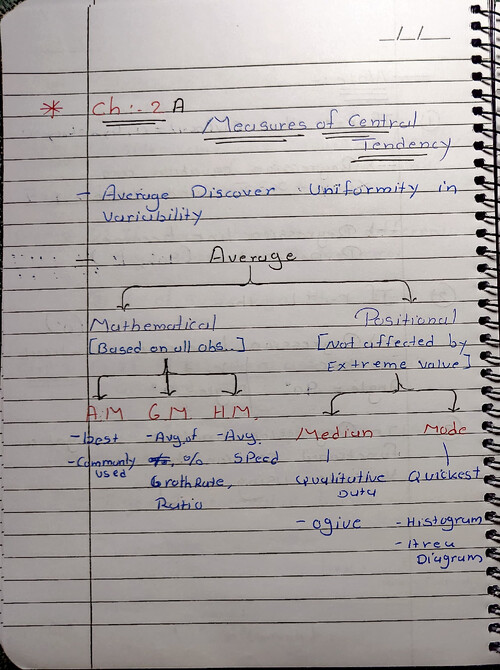 _/_/_
* Ch :- 2 A
Measures of Central
Tendency
- Average Discover Uniformity in
Variability
Average
Mathematical
[Based on all obs..]
Positional
[Not affected by
Extreme value]
A.M
- best
- Commonly
used
G.M
- Avg. of
%
GrothRate,
Ratio
H.M.
- Avg.
Speed
Median
Qualitative
Data
- ogive
Mode
Quickest
- Histogram
- Area
Diagram